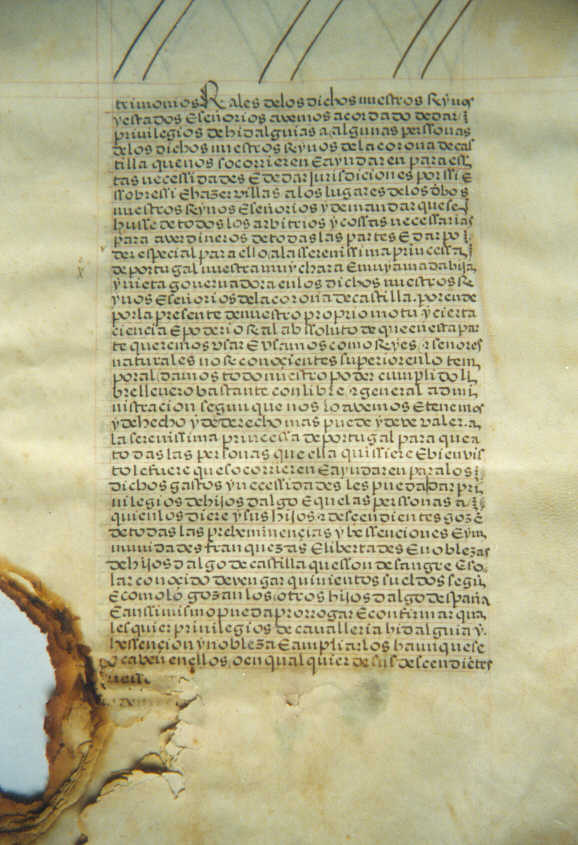 trimonios Rales delos dichos nuestros Reynos
y estados E señorios avemos acordado de dar
privilegios de hidalguias a algunas perssonas
delos dichos nuestros Reynos dela corona de cas
tilla que nos socorrieren E ayudaren para es
tas necessidades E de dar jurisdiciones por si E
sobre si E hazer villas a los lugares delos dhos
nuestros Reynos E señorios y demandar que se
husse de todos los arbitrios y cossas necessarias
para aver dineros de todas las partes E dar po
der especial para ello, ala serenissima princessa
de portugal nuestra muy chara E muy amada hija,
y nieta governadora en los dichos nuestros Re
ynos E señorios dela corona de castilla. por ende
por la presente de nuestro proprio motu y cierta
ciencia E poderio Real absoluto de que en esta par
te queremos usar E usamos como Reyes, & señores
naturales no Reconoçientes superior en lo tem
poral, damos todo nuestro poder cumplido li
bre llenero bastante con libre, & general admi
nistracion segun que nos lo avemos E tenemos
y de hecho y de derecho mas puede y deve valer. a
la serenissima princessa de portugal para que a
todas las personas que ella quissiere E bien vis
to le fuere que socorrieren E ayudaren para los
dichos gastos y necessidades les pueda dar pri
vilegios de hijos dalgo E que las perssonas a
quien los diere y sus hijos & descendientes gozē
de todas las preheminençias y hessenciones E ym
munidades franquezas E libertades E noblezas
de hijos dalgo de castilla que sson de sangre E so
lar conoçido devengar quinientos sueldos segū
E como lo gozan los, otros hijos dalgo despaña
E anssimismo pueda prorrogar E confirmar qua
les quier privilegios de cavalleria hidalguia y
hessençion y nobleza E ampliarlos haunque se
po caben en ellos, o en qualquier de sus descendiētes